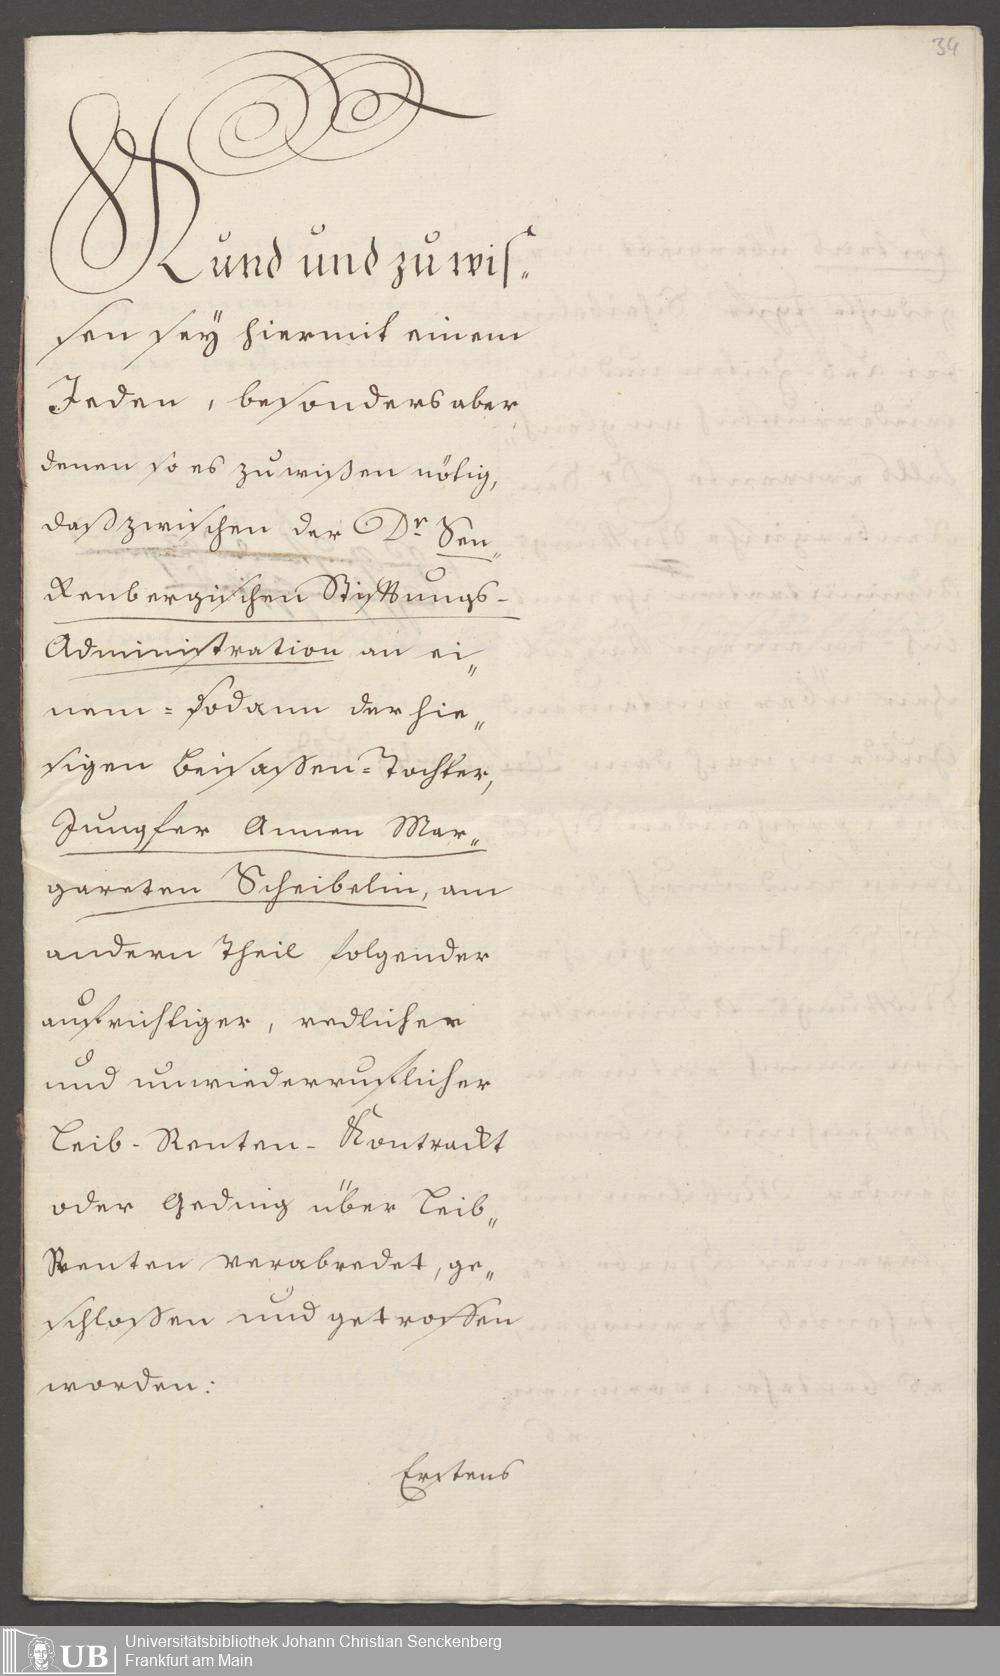 34
Kund und zu wis„
sen sey hiermit einem
Jeden, besonders aber
denen so es zu wißen nötig,
daß zwischen der Dr Sen„
kenbergischen Stifftungs-
Administration an ei„
nem = sodann der hie„
sigen Beisaßen=Tochter,
Jungfer Annen Mar„
gareten Scheibelin, am
andern Theil folgender
aufrichtiger, redlicher
und unwiederruflicher
Leib-Renten-Kontrackt
oder Geding über Leib„
Renten verabredet, ge„
schloßen und getroffen
worden:
Erstens
UB
Universitätsbibliothek Johann Christian Senckenberg
Frankfurt am Main